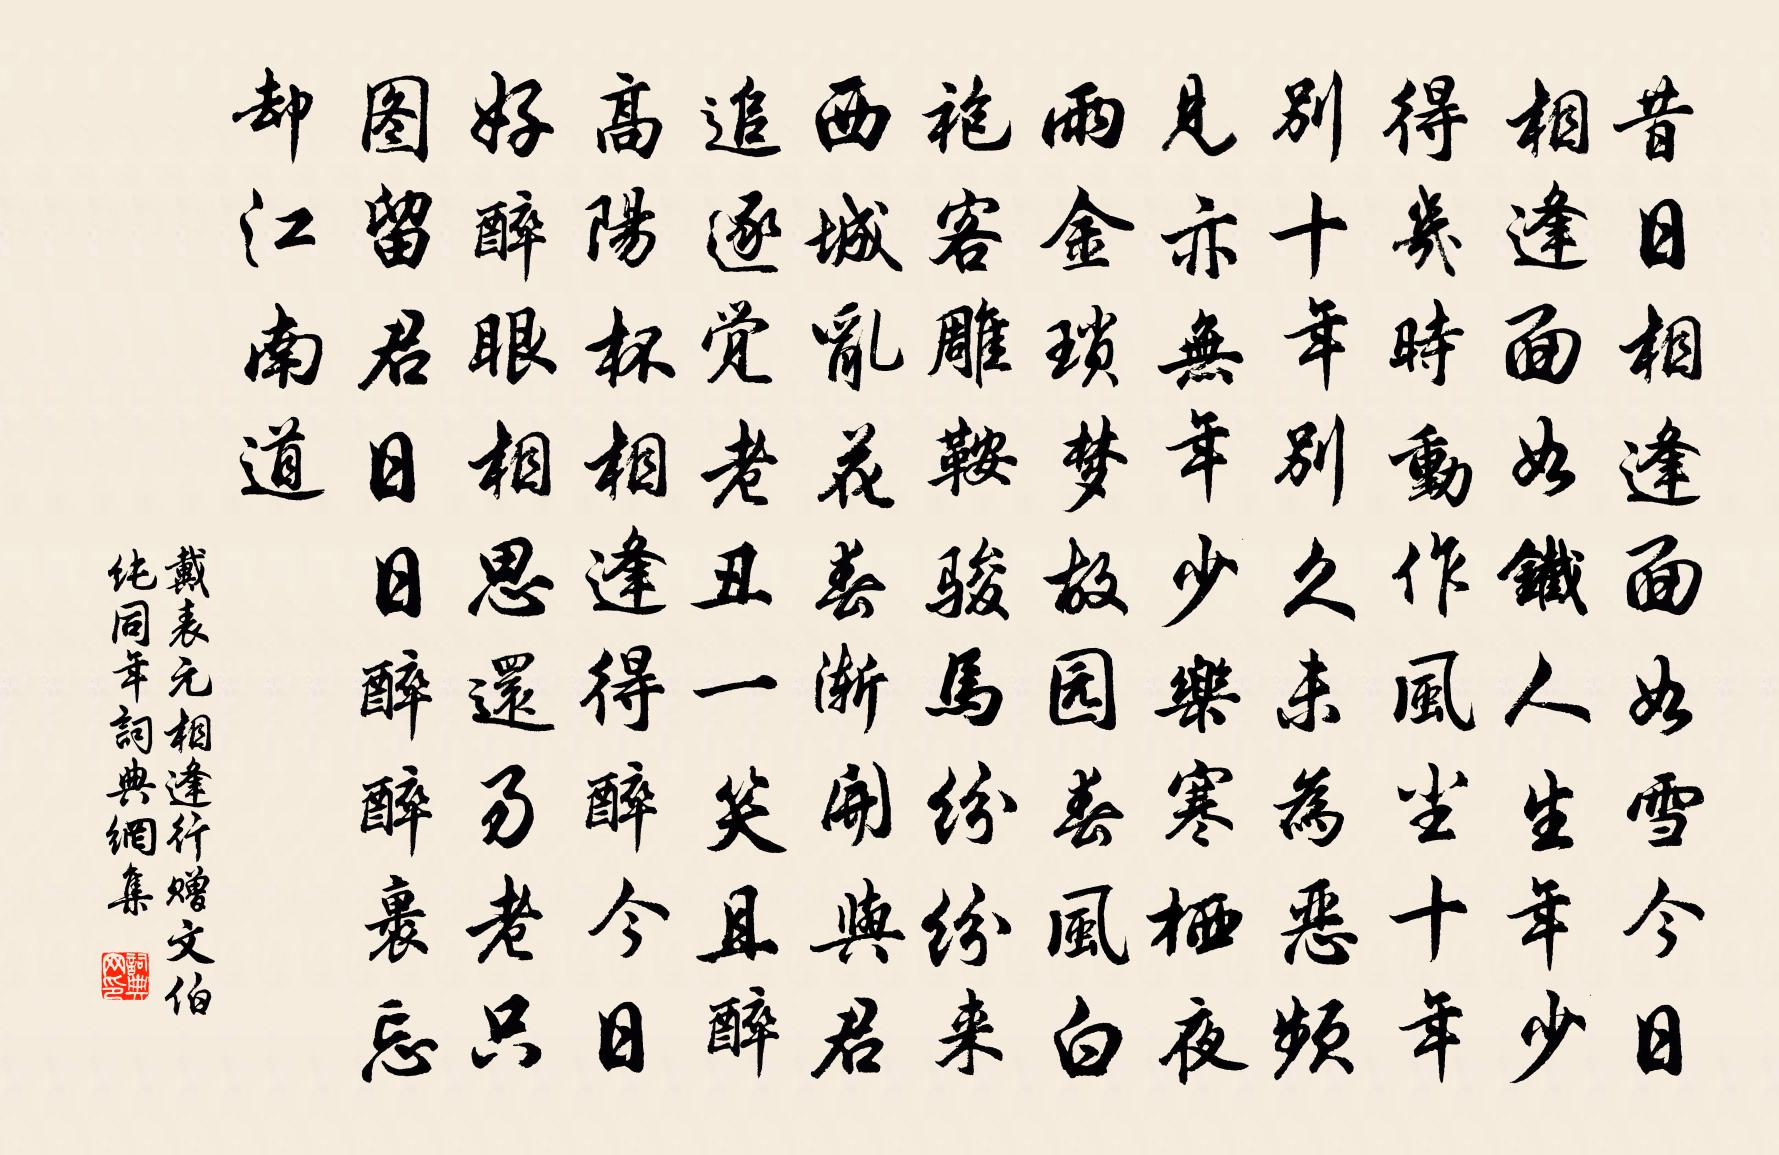 昔日相逢面如雪今日
相逢面如鐵人生年少
得幾時動作風尘十年
别十年别久未為惡頻
見亦無年少樂寒栖夜
雨金琐梦故园春風白
袍客雕鞍骏馬紛紛来
西城亂花春漸開與君
追逐觉老丑一笑且醉
高陽杯相逢得醉今日
好醉眼相思還易老只
图留君日日醉醉裹忘
却江南道
戴表元相逢行赠文伯
纯同年詞典網集
詞典网印